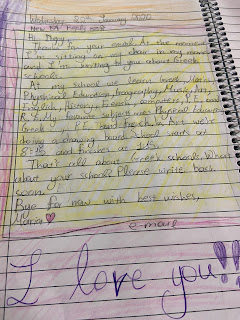 Wednesday 29th January 2020
Thanks for your email. At the moment
I'm sitting on chair in my room
and I'm writing to you about Greek
schools.
At my school we learn Greek, Maths,
Physical Education, Geography, Music, Art,
English, History, French, computers,
R.E. My favourite subjects are Physical Educa
Greek, P.E. and French. Art. We're
doing a drawing board. School starts at
8:15 and finishes at 1:15.
That's all about Greek schools. What
about your school? Please write back
soon!
Bye for now with best wishes,
Maria
e-mail
I love you!!